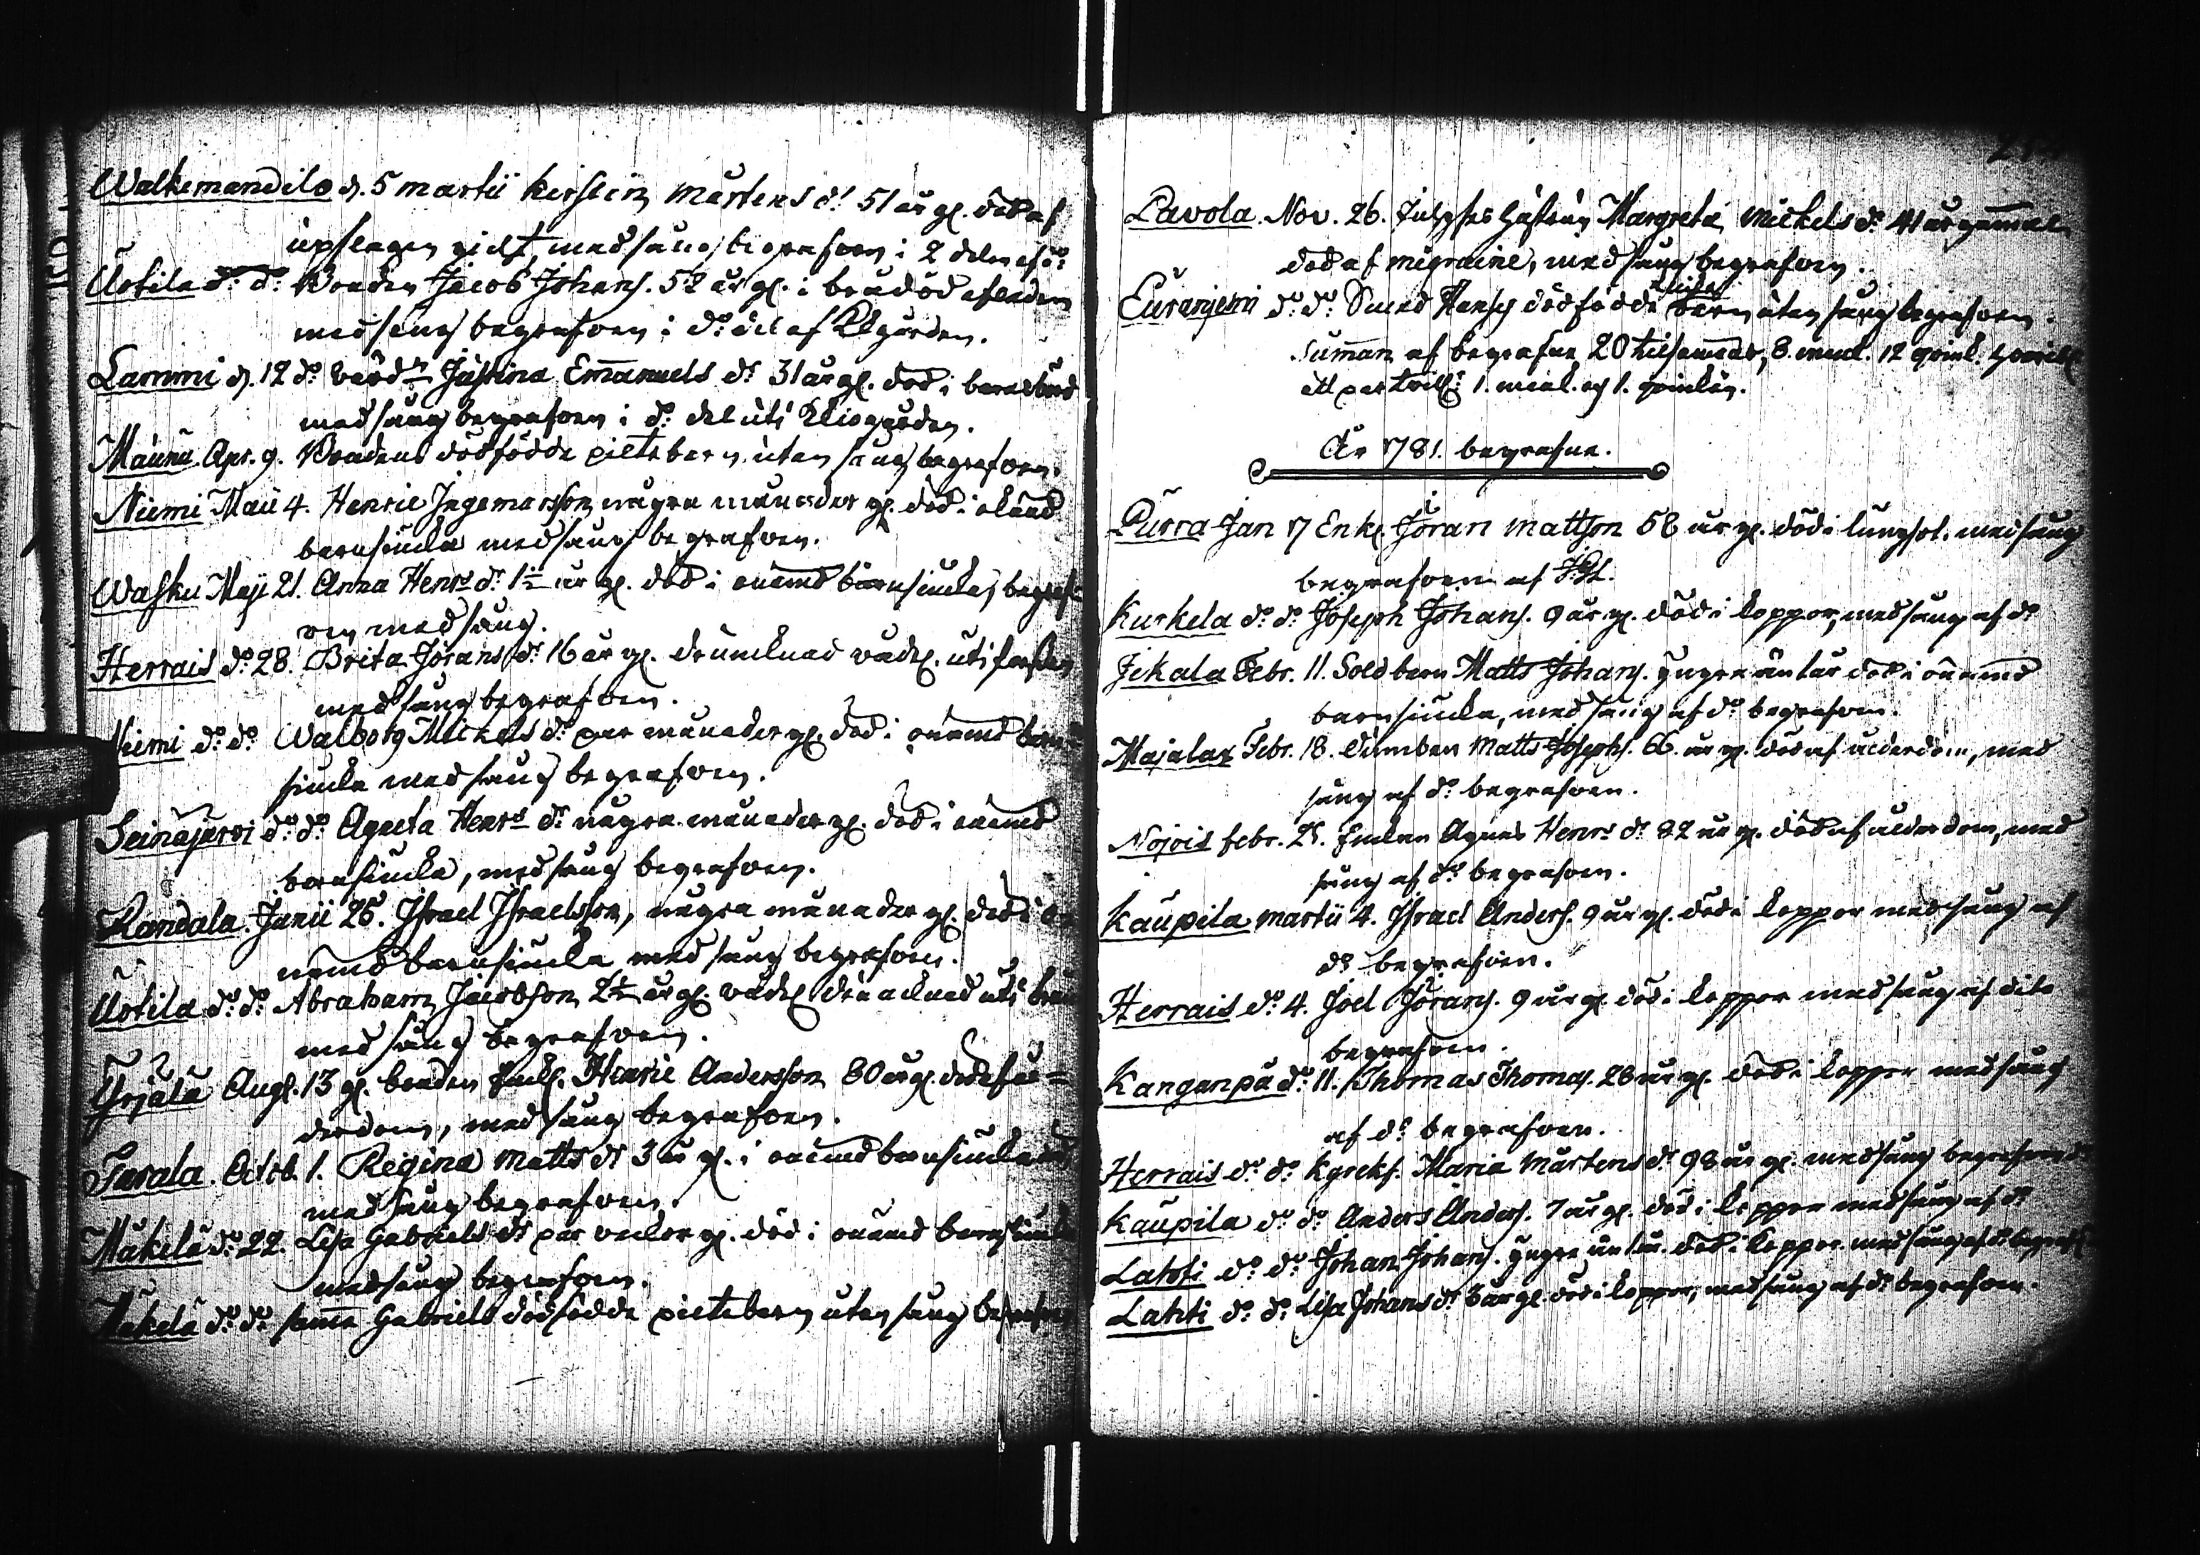 Walkemandila d. 5 martii Kerstin Mårtens dr 51 år gl. död af
upslagen gickt, med sång begrafven i 2 delen af do
Uotila do do Bonden Jacob Johans. 52 år gl. i
med sång begrafven i do del af Kgården.
Lammi d. 12 do Justina Emanuels dr 31 år gl. död i barnsbörd
med sång begrafven i do del uti Kgården.
Maunu Apr. 9. Bondens dödfödde piltebarn utan sång begrafven.
Niemi Maii 4. Henric Ingemarsson några månader gl. död i okänd
barnsiucka med sång begrafven.
Wasku Maji 21. Anna Henrs dr 1½ år gl. död i onämd barnsiucka, begraf-
ven med sång.
Herrais do 28. Brita Jörans dr 16 år gl. druncknad vådl. uti forssen
med sång begrafven.
Niemi do do Walborg Mickels dr par månader gl. död i onämd barn-
siucka med sång begrafven.
Seinäjärvi do do Agneta Henrs dr några månader gl. död i onämd
barnsiucka, med sång begrafven.
Randala Junii 25. Israel Israelsson, några månader gl. död i o-
nämd barnsiucka med sång begrafven.
Uotila do do Abraham Jacobsson 2½ år gl. vådl. druncknad uti
med sång begrafven.
Yrjälä Aug. 13 gl. bonden Henric Andersson 80 år gl. död af ål-
derdom, med sång begrafven.
Tarala Octob. 1. Regina Matts dr 3 år gl. i onämd barnsiucka
med sång begrafven.
Mäkelä do 22. Lisa Gabriels dr par veckor gl. död i onämd barnsiucka
med sång begrafven.
Mäkelä do do samma Gabriels dödfödde piltebarn utan sång begrafven
Pavola Nov. 26. Margreta Mickels dr 41 år gammal
död af migraine, med sång begrafven.
Euranjemi do do Hans. dödfödde barn utan sång begrafven.
Summan af begrafne 20 tilsamman, 8. mank. 12 qvink.
ett par 1. mank. og 1. qvinkön.
År 1781. begrafne.
Purra Jan 7 Enkl. Jöran Mattson 58 år gl. död i lungsot. med sång
begrafven af
Kurkela do do Joseph Johans. 9 år gl. död i koppor, med sång af do
Jekala Febr. 11. Sold barn Matts Johans. yngre än 1 år död i onämd
barnsiucka, med sång af do begrafven.
Majalax Febr. 18. Matts Josephs. 66. år gl. död af ålderdom, med
sång af do begrafven.
Nojois febr. 25. Enkan Agnes Henrs dr 82 år gl. död af ålderdom, med
sång af do begrafven.
Kaupila martii 4. Israel Anders. 9 år gl. död i koppor med sång af
do begrafven.
Herrais do 4. Joel Jörans. 9 år gl. död i koppor med sång af dito
begrafven.
Kanganpä do 11. Thomas Thomas. 28 år gl. död i koppor med sång
af do begrafven.
Herrais do do Maria Mårtens dr 98 år gl. med sång begrafven
Kaupila do do Anders Anders. 7 år gl. död i koppor med sång af do
Lahti do do Johan Johans. yngre än 1 år. död i koppor med sång af do begrafven
Lahti do do Lisa Johans dr 3 år gl. död i koppor, med sång af do begrafven.